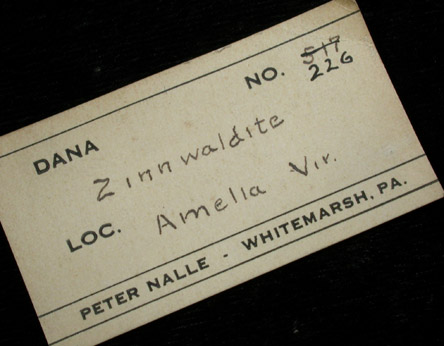 NO. 517
226
DANA
Zinnwaldite
LOC. Amelia Vir.
PETER NALLE - WHITEMARSH, PA.